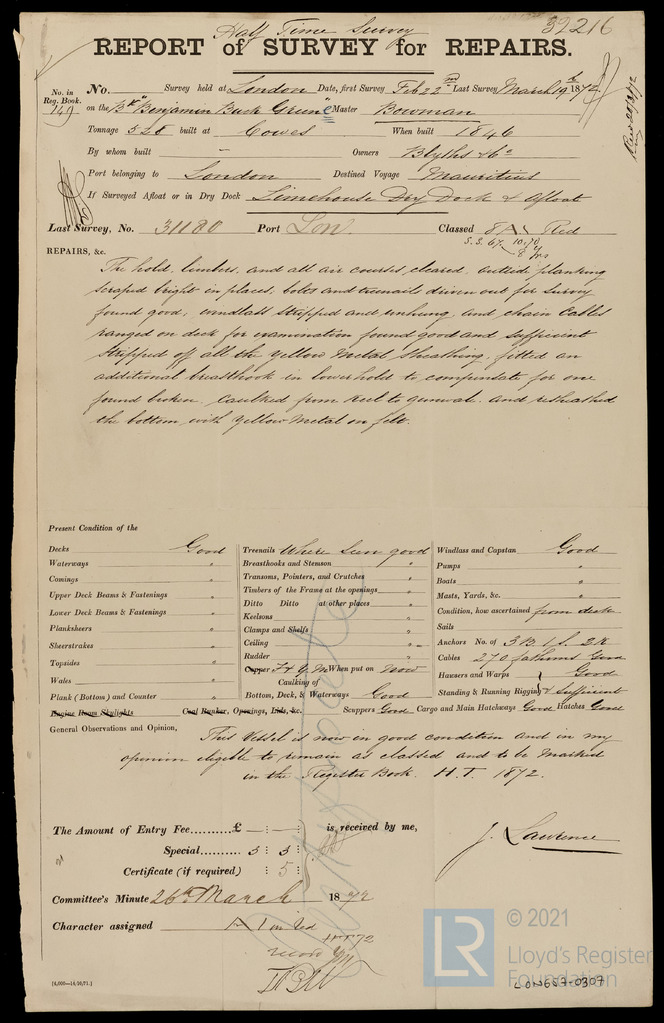 Half Time Survey
39216
REPORT of SURVEY for REPAIRS.
No. in Reg. Book. 149
No. Survey held at London Date, first Survey Feb 22nd Last Survey March 19th 1872
on the Bk "Benjamin Buck Greene" Master Bowman
Tonnage 528 built at Cowes When built 1846
By whom built – Owners Blyths & Co
Port belonging to London Destined Voyage Mauritius
If Surveyed Afloat or in Dry Dock Limehouse Dry Dock & Afloat
Last Survey, No. 31180 Port Lon. Classed 8 A1 Red
S.S. 67. 10.70
8 yrs
REPAIRS, &c.
The hold, limbers, and all air courses cleared, outside planking
scraped bright in places, bolts and treenails driven out for survey
found good, windlass stripped and unhung, and chain Cables
ranged on deck for examination found good and sufficient
Stripped off all the Yellow Metal Sheathing, fitted an
additional breasthook in lower hold to compensate for one
found broken. Caulked from keel to gunwale. and resheathed
the bottom, with Yellow Metal on felt.
Present Condition of the
Decks Good
Waterways "
Comings "
Upper Deck Beams & Fastenings "
Lower Deck Beams & Fastenings "
Planksheers "
Sheerstrakes "
Topsides "
Wales "
Plank (Bottom) and Counter "
Engine Room Skylights
Treenails Where Seen good
Breasthooks and Stemson "
Transoms, Pointers, and Crutches "
Timbers of the Frame at the openings "
Ditto Ditto at other places "
Keelsons "
Clamps and Shelfs "
Ceiling "
Rudder "
Copper F & Y M When put on Now
Caulking of
Bottom, Deck, & Waterways Good
Coal Bunker, Openings, Lids, &c.
Windlass and Capstan Good
Pumps "
Boats "
Masts, Yards, &c. "
Condition, how ascertained from deck
Sails "
Anchors No. of 3 B. 1 S. 2 K
Cables 270 fathoms Good
Hawsers and Warps Good
Standing & Running Rigging & Sufficient
Scuppers Good Cargo and Main Hatchways Good Hatches Good
General Observations and Opinion, This Vessel is now in good condition and in my
opinion eligible to remain as classed and to be Marked
in the Register Book. H.T. 1872.
The Amount of Entry Fee £ – : – : is received by me,
Special 3 : 3 :
Certificate (if required) : 5 :
J. Lawrence
Committee's Minute 26th March 1872
Character assigned A 1 in red
HT 72
[4,000—14/10/71.]
LR
© 2021
Lloyd's Register
Foundation
LON657-0307